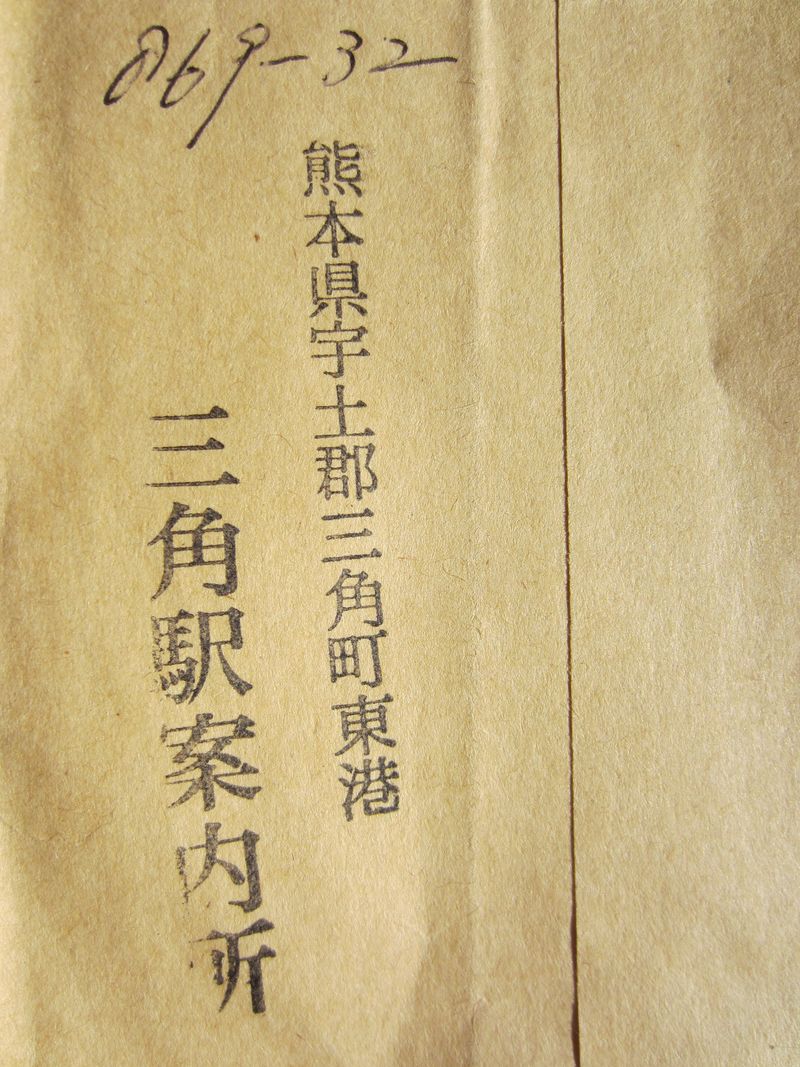 869-32
熊本県宇土郡三角町東港
三角駅案内所